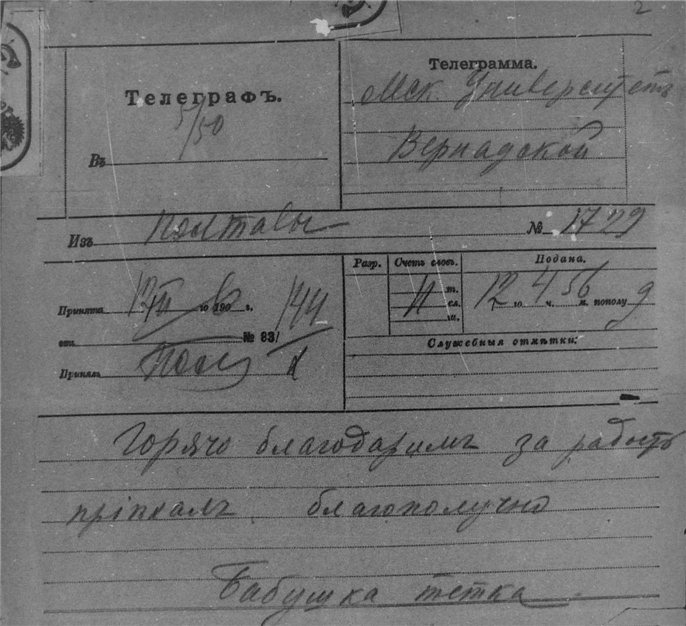 2
Телеграфъ.
5/50
Въ
Телеграмма.
Мск. Университетъ
Вернадской
Изъ Полтавы № 1729
Принята 12 го 190 г.
от № 83/ 144
Принялъ
Разр. Счетъ словъ. Подана.
т.
сл.
ш.
11
12 го 4 ч. 56 м. пополу д
Служебныя отмѣтки:
Горячо благодаримъ за радость
пріѣхалъ благополучно
Бабушка тетка